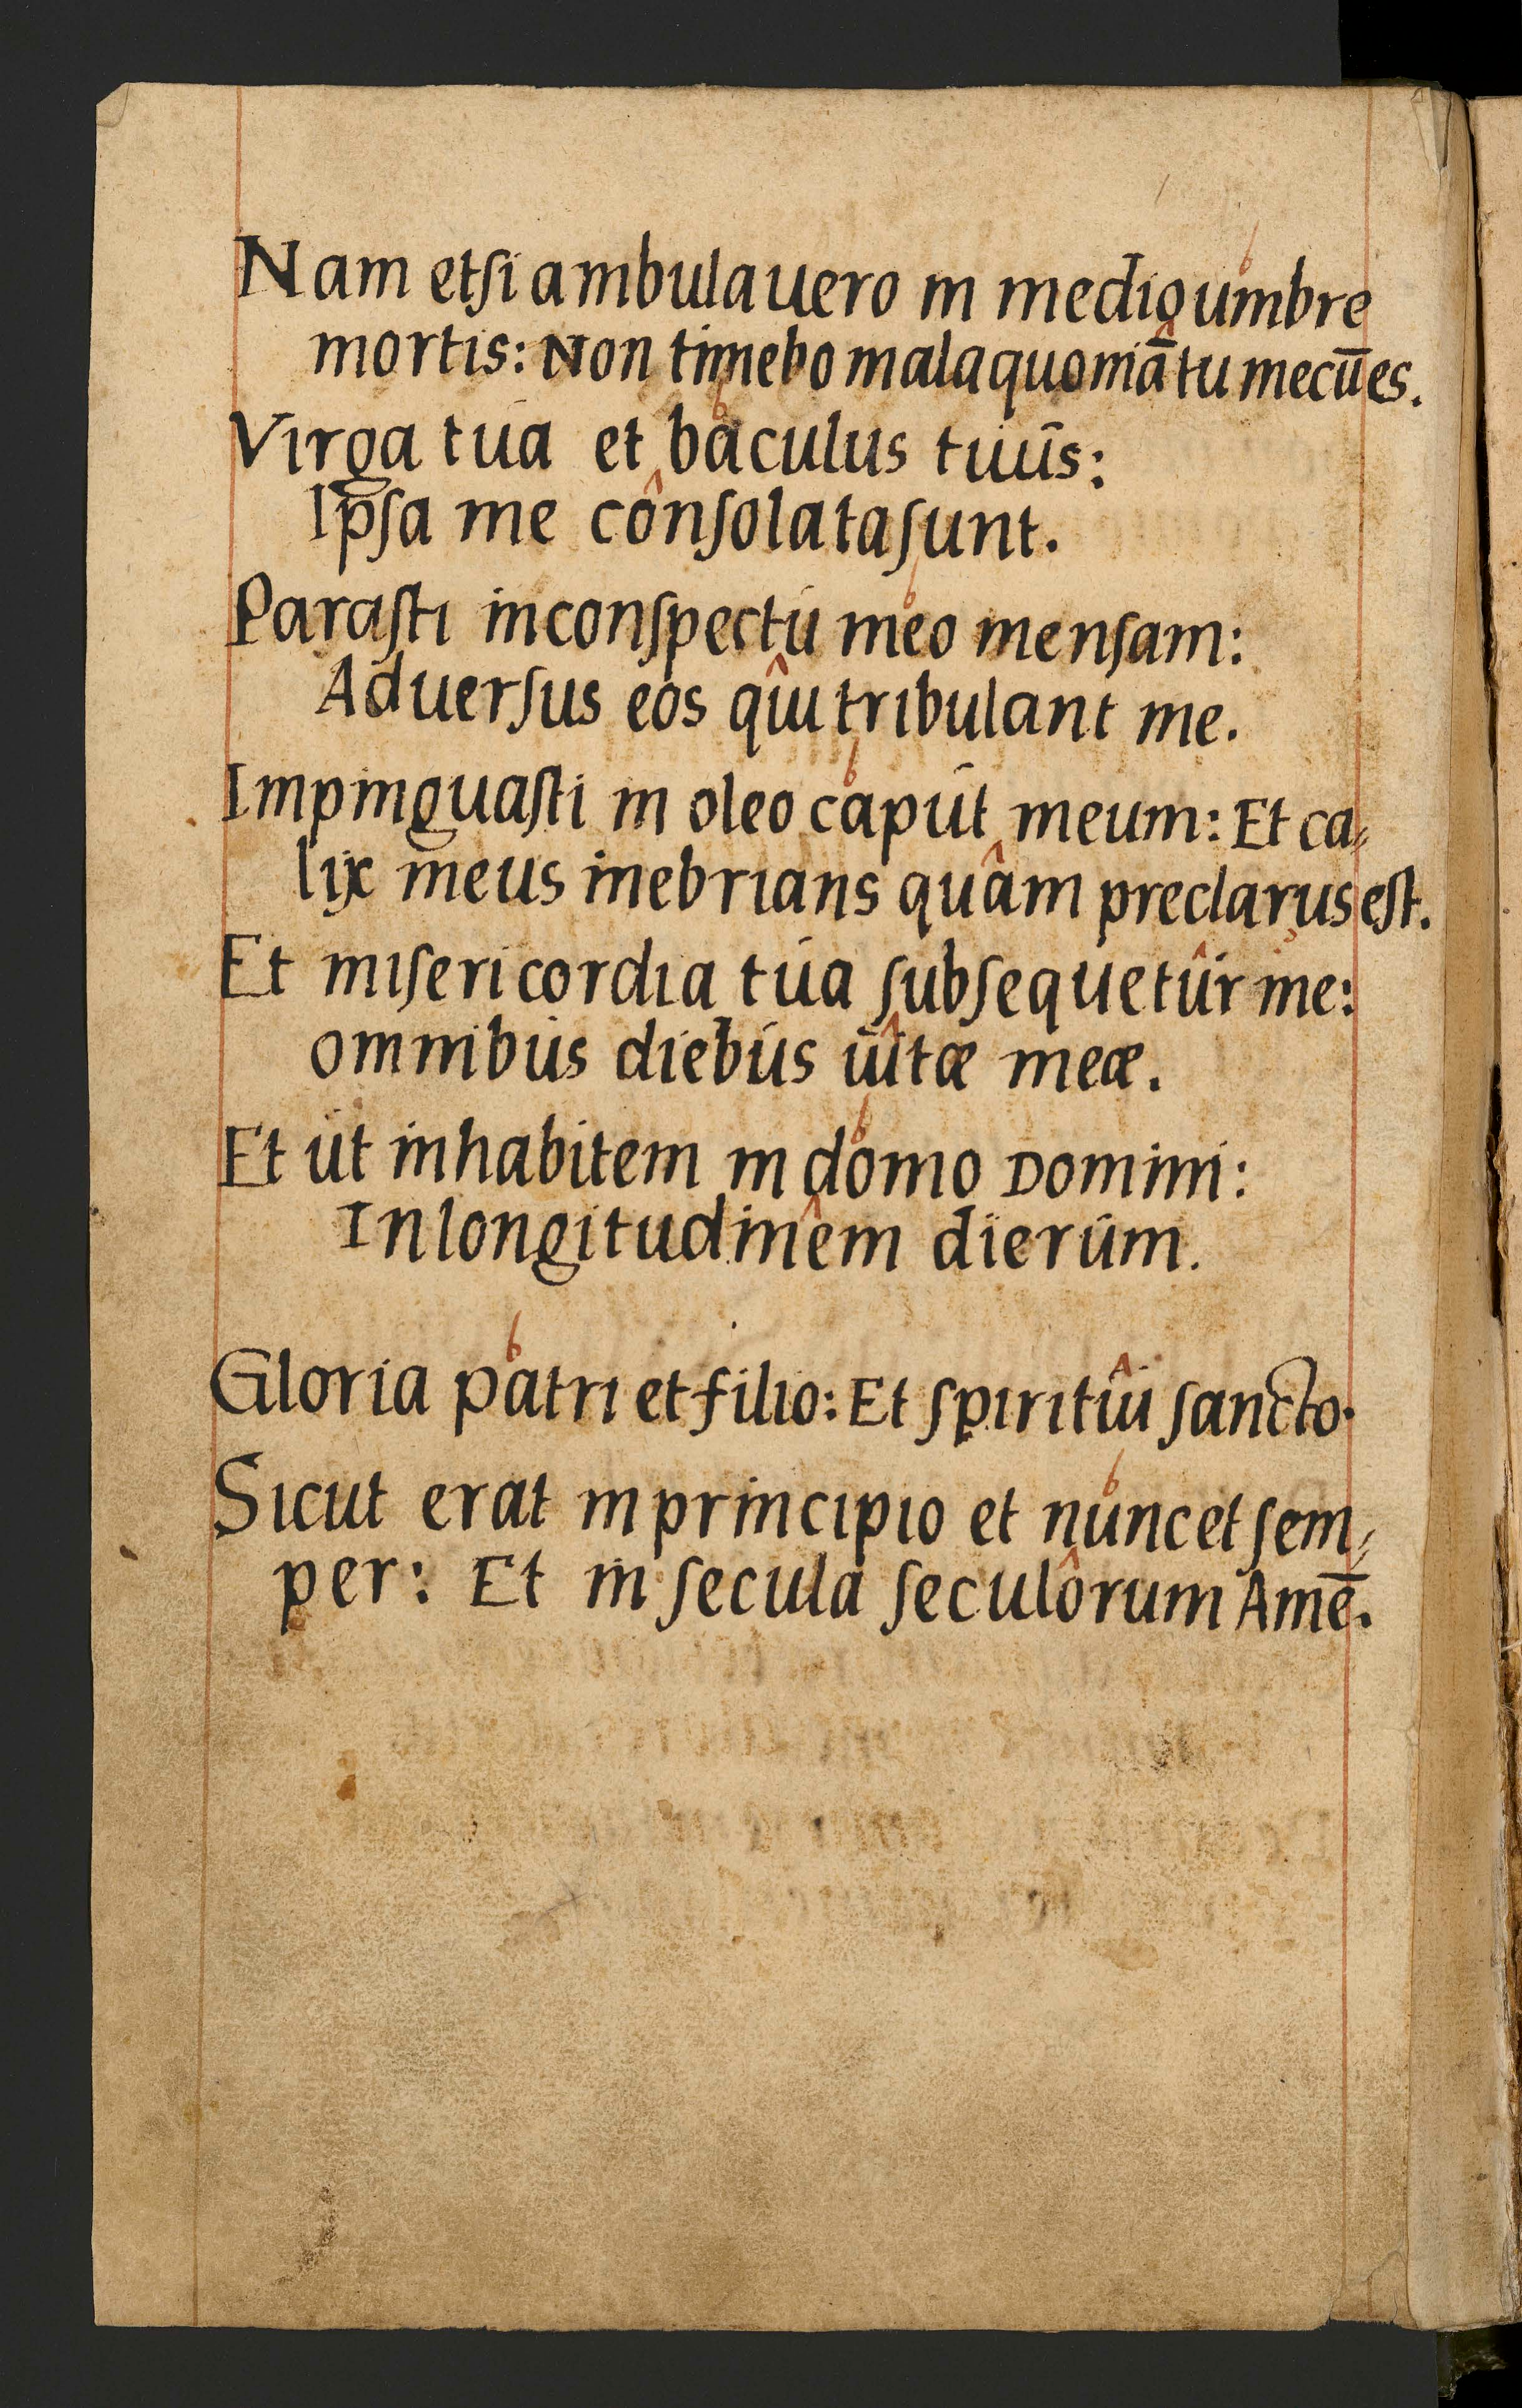 Nam etſi ambulauero in medio umbre
mortis: Non timebo mala quoniā tu mecū es.
Virga tua et baculus tuus:
Ipſa me conſolata ſunt.
Paraſti in conſpectu meo menſam:
Aduerſus eos qui tribulant me.
Impinguaſti in oleo caput meum: Et ca⸗
lix meus inebrians quam preclarus eſt.
Et miſericordia tua ſubſequetur me:
omnibus diebus uitæ meæ.
Et ut inhabitem in domo Domini:
In longitudinem dierum.
Gloria patri et filio: Et ſpiritui ſancto.
Sicut erat in principio et nunc et ſem⸗
per: Et in ſecula ſeculorum Amē.